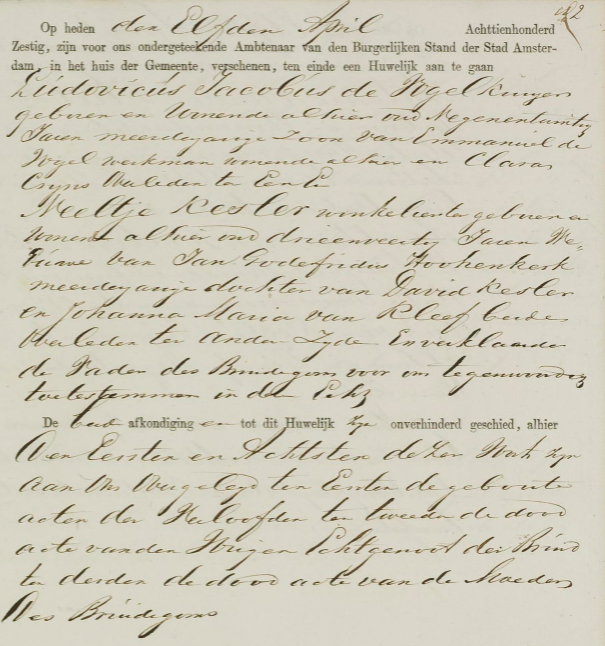 Op heden den Elfden April Achttienhonderd
Zestig, zijn voor ons ondergeteekende Ambtenaar van den Burgerlijken Stand der Stad Amster-
dam, in het huis der Gemeente, verschenen, ten einde een Huwelijk aan te gaan
Ludovicus Jacobus de Vogel
geboren en wonende alhier oud Negenentwintig
Jaren meerderjarige Zoon van Emmanuel de
Vogel werkman wonende alhier en Clara
Cryns Overleden ter Eenre
Neeltje Kesler winkelierster geboren en
wonende alhier oud drieenveertig Jaren We-
duwe van Jan Godefridus Hoohenkerk
meerderjarige dochter van David Kesler
en Johanna Maria van Kleef beide
Overleden ter andere Zyde En verklaarde
de Vader des Bruidegoms voor ons tegenwoordig
toetestemmen in den Echt
De beide afkondigingen tot dit Huwelijk zyn onverhinderd geschied, alhier
den Eersten en Achtsten dezer Werk zyn
aan Ons Overgelegd ten Eersten de geboorte
acten der Verloofden ten tweeden de dood
acte van den Vorigen Echtgenoot der Bruid
ten derden de dood acte van de Moeder
des Bruidegoms